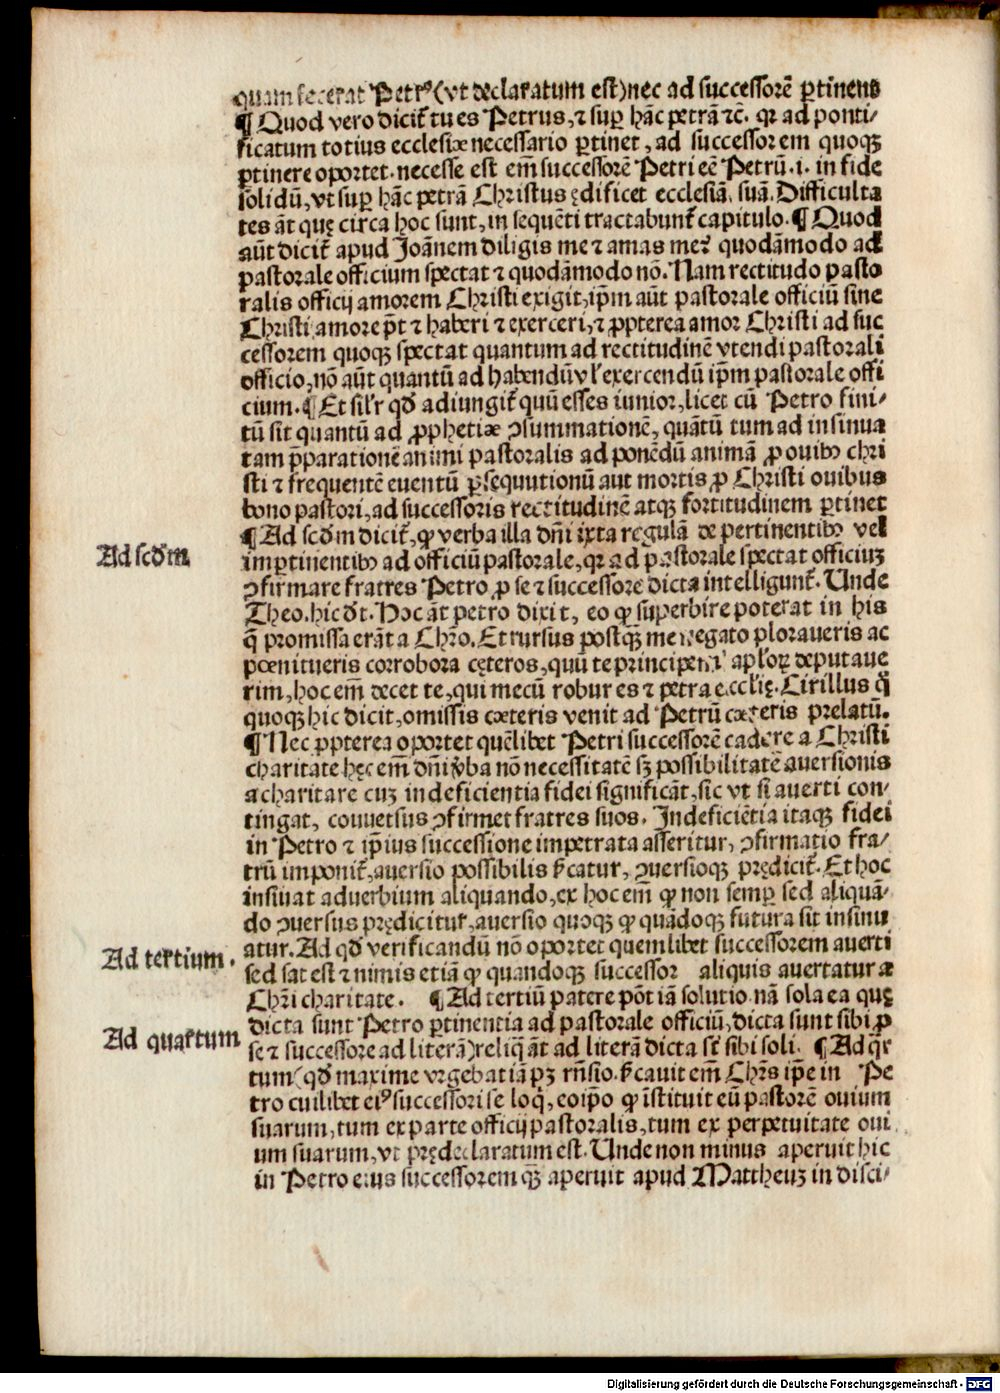 quam fecerat Petrꝰ (vt declaratum est) nec ad successorē ꝑtinens
¶ Quod vero dicit᷑ tu es Petrus, ⁊ suꝑ hāc petrā ⁊c̄. qꝛ ad ponti-
ficatum totius ecclesiæ necessario ꝑtinet, ad successorem quoqꝫ
ꝑtinere oportet. necesse est em̄ successorē Petri eē Petrū .i. in fide
solidū, vt suꝑ hāc petrā Christus ędificet ecclesiā. suā. Difficulta
tes āt quę circa hoc sunt, in sequēti tractabunt᷑ capitulo. ¶ Quod
aūt dicit᷑ apud Joānem diligis me ⁊ amas me? quodāmodo ad
pastorale officium spectat ⁊ quodāmodo nō. Nam rectitudo pasto
ralis officij amorem Christi exigit, ip̄m aūt pastorale officiū sine
Christi amore pōt ⁊ haberi ⁊ exerceri, ⁊ ꝓpterea amor Christi ad suc
cessorem quoqꝫ spectat quantum ad rectitudinē vtendi pastorali
officio, nō aūt quantū ad habendū vl' exercendū ip̄m pastorale offi
cium. ¶ Et sil'r qd̄ adiungit᷑ quū esses iunior, licet cū Petro fini-
tū sit quantū ad ꝓphetiæ ꝯsummationē, quātū tum ad insinua
tam p̄parationē animi pastoralis ad ponēdū animā ꝓ ouibꝰ chri
sti ⁊ frequentē euentū ꝑsequutionū aut mortis ꝓ Christi ouibus
bono pastori, ad successoris rectitudinē atqꝫ fortitudinem ꝑtinet
¶ Ad scd̄m dicit᷑, ꝙ verba illa dn̄i ixta regulā de pertinentibꝰ vel
imꝑtinentibꝰ ad officiū pastorale, qꝛ ad pastorale spectat officiuꝫ
ꝯfirmare fratres Petro ꝓ se ⁊ successore dicta intelligunt᷑. Unde
Theo. hic dt̄. Hoc āt petro dixit, eo ꝙ superbire poterat in his
q̄ promissa erāt a Chr̄o. Et rursus postqꝫ me negato ploraueris ac
pœnitueris corrobora cęteros, quū te principem apl'oꝝ deputaue
rim, hoc em̄ decet te, qui mecū robur es ⁊ petra eccl'ię. Cirillus q̄
quoqꝫ hic dicit, omissis cæteris venit ad Petrū cæteris prelatū.
¶ Nec ꝓpterea oportet quēlibet Petri successorē cadere a Christi
charitate hęc em̄ dn̄i v̄ba nō necessitatē sꝫ possibilitatē auersionis
a charitate cuꝫ indeficientia fidei significāt, sic vt si auerti con-
tingat, conuersus ꝯfirmet fratres suos. Indeficiētia itaqꝫ fidei
in Petro ⁊ ip̄ius successione impetrata asseritur, ꝯfirmatio fra-
trū imponit᷑, auersio possibilis p̄catur, ꝯuersioqꝫ prędicit᷑. Et hoc
insinuat aduerbium aliquando, ex hoc em̄ ꝙ non semꝑ sed aliquā-
do ꝯuersus prędicitur, auersio quoqꝫ ꝙ quādoqꝫ futura sit insinu
atur. Ad qd̄ verificandū nō oportet quemlibet successorem auerti
sed sat est ⁊ nimis etiā ꝙ quandoqꝫ successor aliquis auertatur a
Chr̄i charitate. ¶ Ad tertiū patere pōt iā solutio. nā sola ea quę
dicta sunt Petro ꝑtinentia ad pastorale officiū, dicta sunt sibi ꝓ
se ⁊ successore ad literā) reliq̄ āt ad literā dicta st̄ sibi soli. ¶ Ad q̄r
tum (qd̄ maxime vrgebat iā pꝫ rn̄sio. p̄cauit em̄ Chr̄s ip̄e in Pe
tro cuilibet eiꝰ successori se loq̄, eoip̄o ꝙ īstituit eū pastorē ouium
suarum, tum ex parte officij pastoralis, tum ex perpetuitate oui
um suarum, vt prędeclaratum est. Unde non minus aperuit hic
in Petro eius successorem qꝫ aperuit apud Mattheuꝫ in disci-
Ad scd̄m
Ad tertium.
Ad quartum
Digitalisierung gefördert durch die Deutsche Forschungsgemeinschaft - DFG